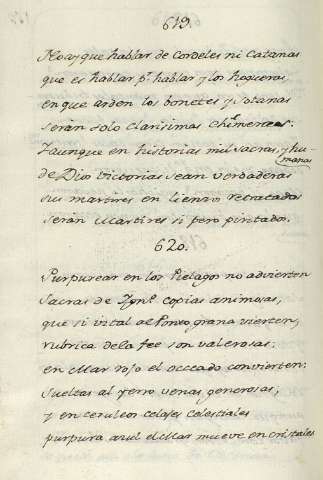 619.
No ay que hablar de cordeles ni Catanas
que es hablar pr hablar y los hogueras
en que arden los bonetes y sotanas
seràn solo clarisimas chimeras.
Y aunque en historias mil sacras, y hu-
manas
de Dios victorias sean verdaderas
sus martires en lienzo retratados
seràn Martires si pero pintados.
620.
Purpurear en los Pielagos no advierten
Sacras de Ygno copias animosas,
que si vital al Ponto grana vierten,
rubrica de la fee son valerosas:
en Mar rojo el occeado convierten
sueltas al yerro venas generosas,
y en ceruleos celajes celestiales
purpura azul el Mar mueve en cristales